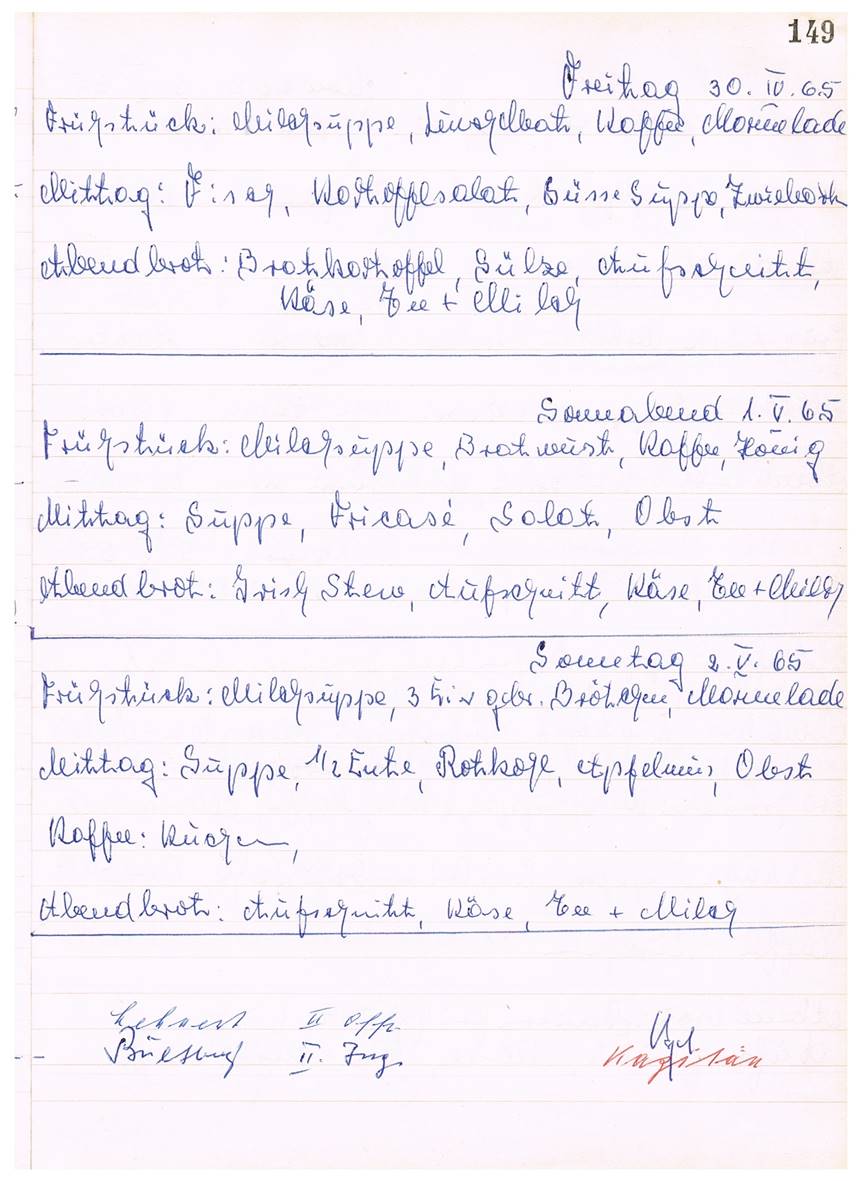 149
Freitag 30. IV. 65
Frühstück: Milchsuppe, Kaffee, Marmelade
Mittag: Fisch, Kartoffelsalat, Süsse Suppe, Zwieback
Abendbrot: Bratkartoffel, Sülze, Aufschnitt,
Käse, Tee + Milch
Sonnabend 1. V. 65
Frühstück: Milchsuppe, Bratwurst, Kaffee, Honig
Mittag: Suppe, Fricasé, Salat, Obst
Abendbrot: Irish Stew, Aufschnitt, Käse, Tee + Milch
Sonntag 2. V. 65
Frühstück: Milchsuppe, 3 Eier gebr. Brötchen, Marmelade
Mittag: Suppe, 1/2 Ente, Rotkohl, Apfelmus, Obst
Kaffee: Kuchen,
Abendbrot: Aufschnitt, Käse, Tee + Milch
II Offz.
II. Ing.
Kapitän